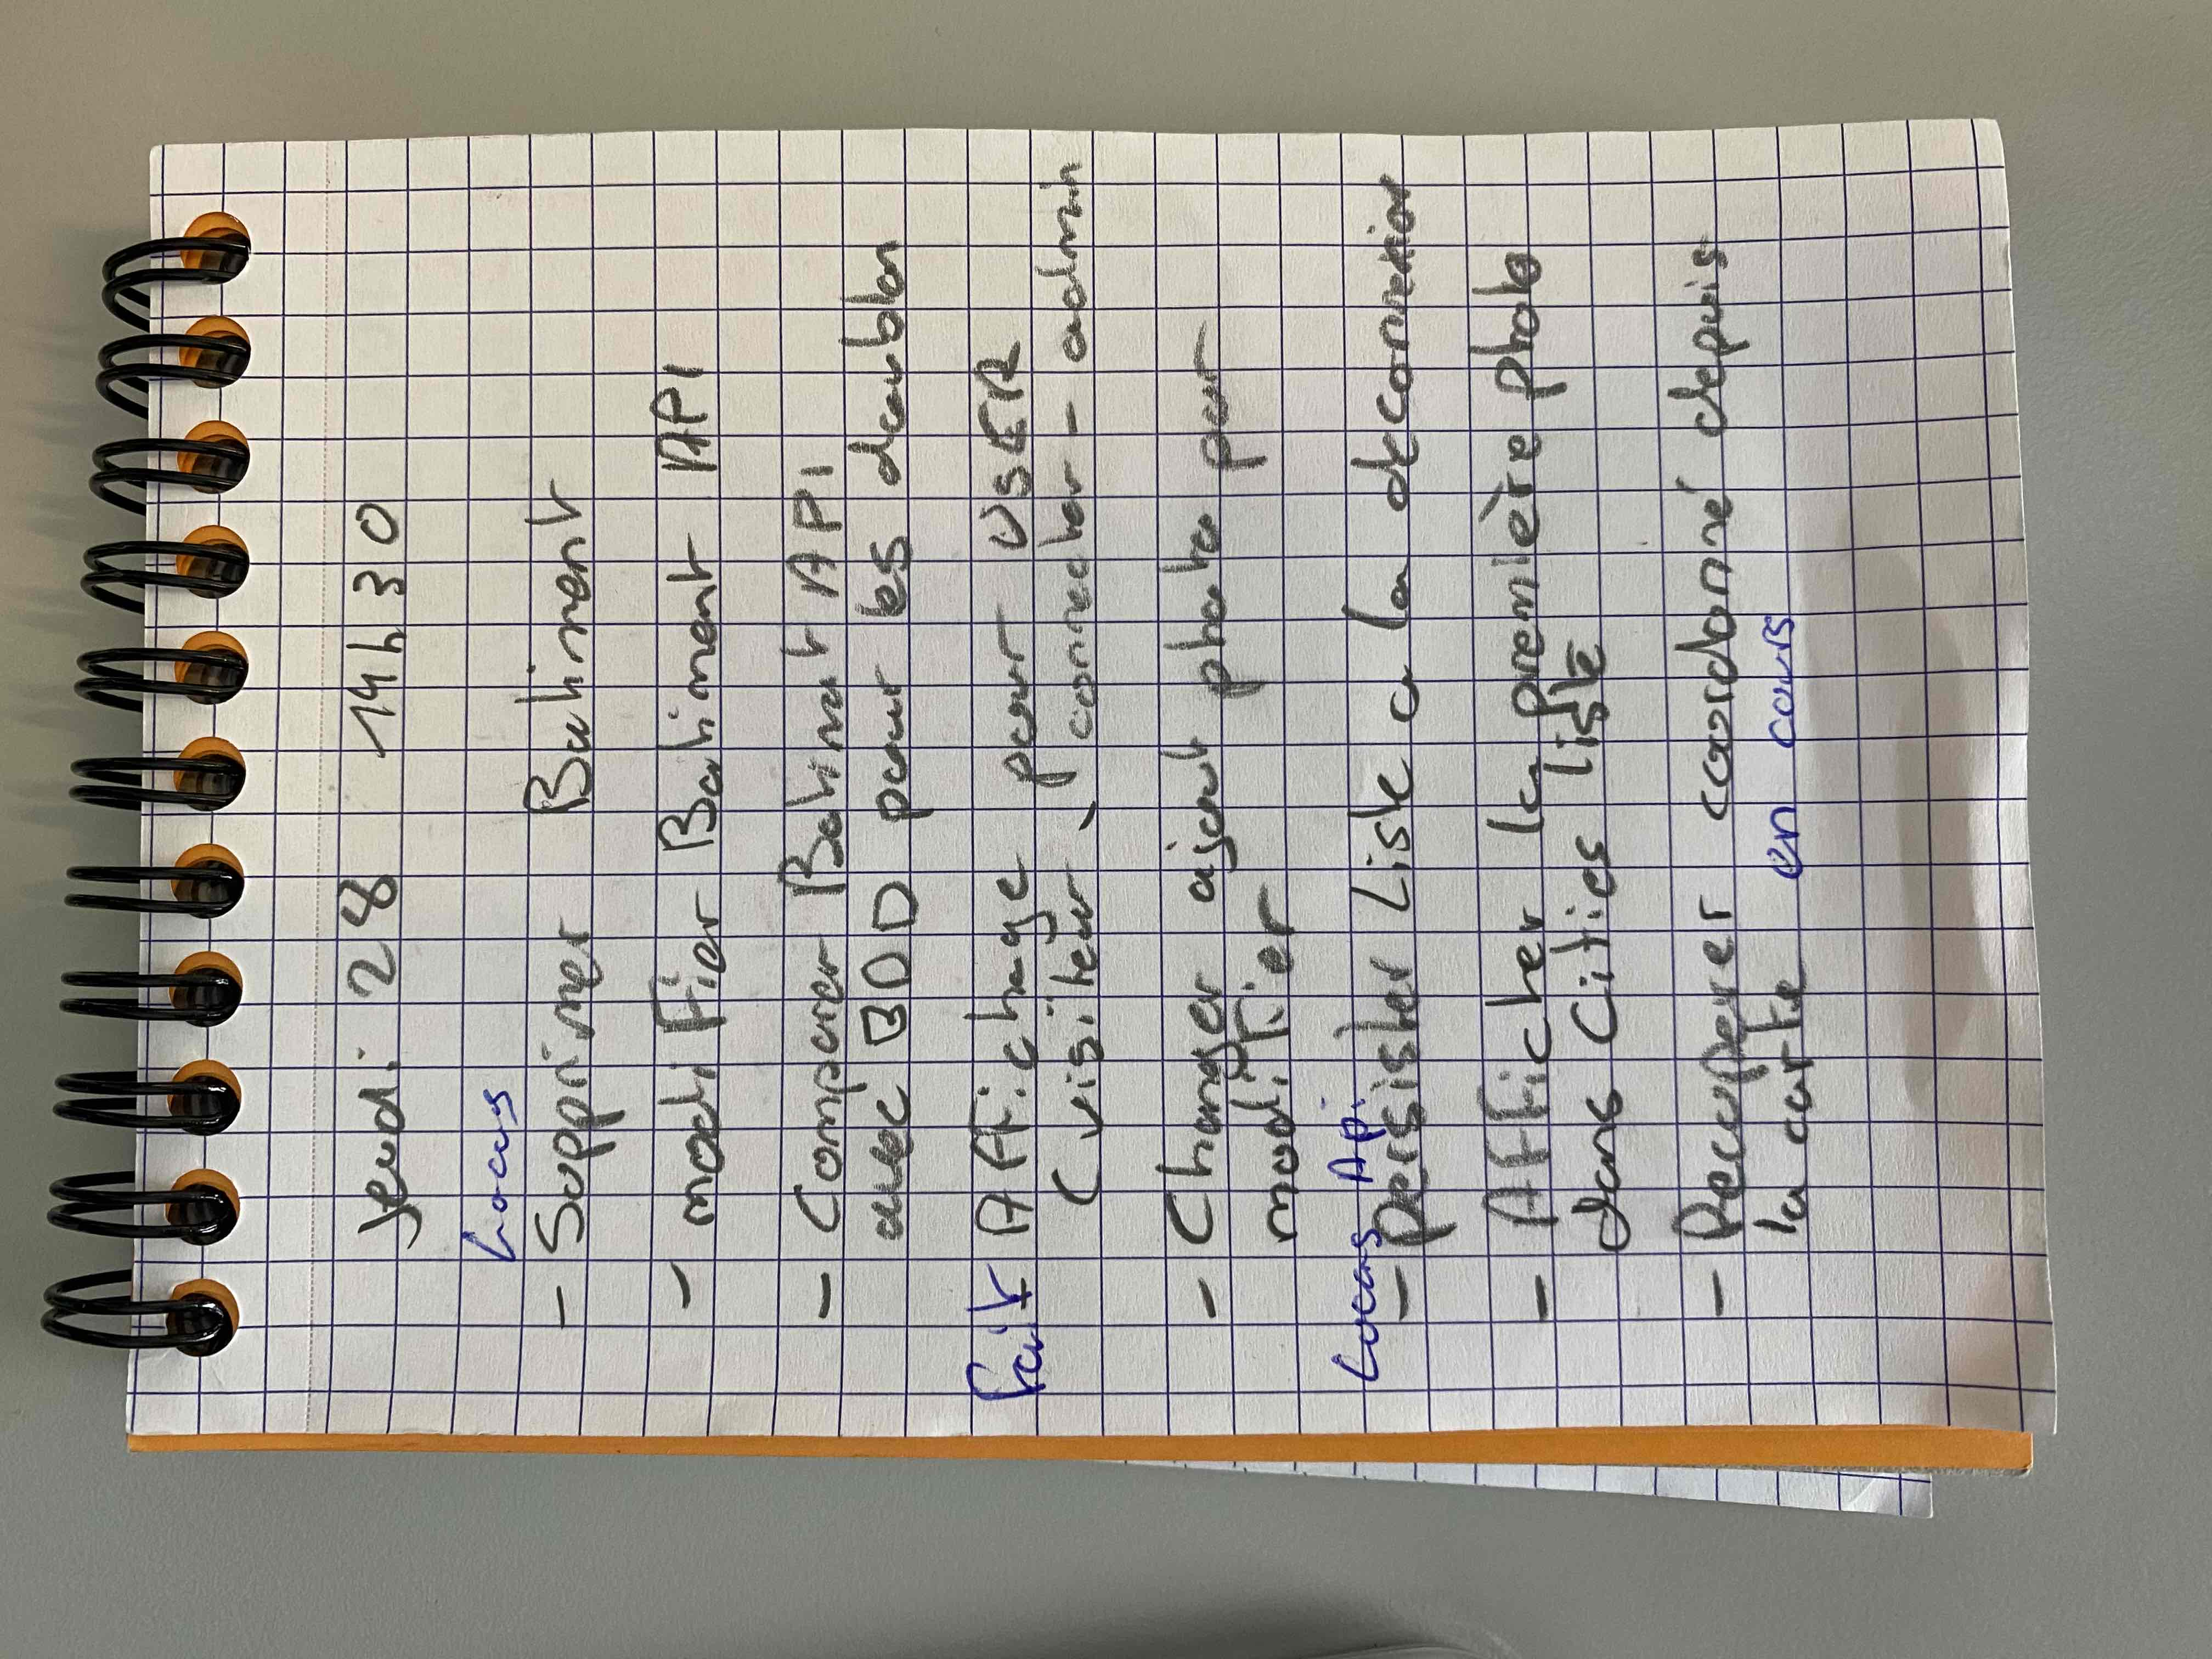 jeudi 28 14h30
Lucas
- Supprimer Batiment
- modiFier Batiment API
- Comparer Batimat API
avec BDD pour les doublon
fait AFFichage pour USER
(visiteur, connecter - admin
- Changer ajout photo par
modiFier
Lucas Api
- persister Liste a la deconnexion
- AFFicher la première photo
dans Cities liste
- Recuperer coordonné depuis
la carte en cours